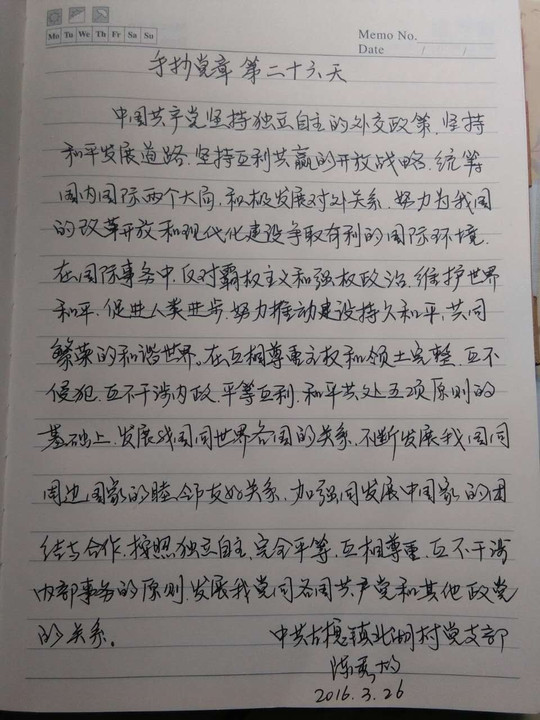 Mo Tu We Th Fr Sa Su
Memo No.
Date / /
手抄党章 第二十六天
中国共产党坚持独立自主的外交政策,坚持
和平发展道路,坚持互利共赢的开放战略,统筹
国内国际两个大局,积极发展对外关系,努力为我国
的改革开放和现代化建设争取有利的国际环境.
在国际事务中,反对霸权主义和强权政治,维护世界
和平,促进人类进步,努力推动建设持久和平,共同
繁荣的和谐世界。在互相尊重主权和领土完整,互不
侵犯,互不干涉内政,平等互利,和平共处五项原则的
基础上,发展我国同世界各国的关系,不断发展我国同
周边国家的睦邻友好关系,加强同发展中国家的团
结与合作,按照独立自主,完全平等,互相尊重,互不干涉
内部事务的原则,发展我党同各国共产党和其他政党
的关系。
中共古槐镇北湖村党支部
陈
2016.3.26